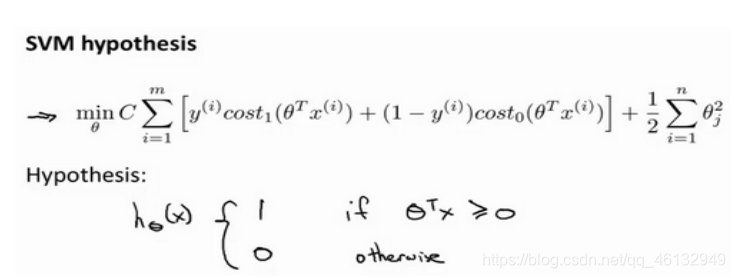 SVM hypothesis
→ min_θ C ∑_{i=1}^{m} [y^{(i)}cost₁(θᵀx^{(i)}) + (1 − y^{(i)})cost₀(θᵀx^{(i)})] + 1/2 ∑_{i=1}^{n} θ_j^2
Hypothesis:
h_θ(x) { 1 if θᵀx ≥ 0
0 otherwise
https://blog.csdn.net/qq_46132949